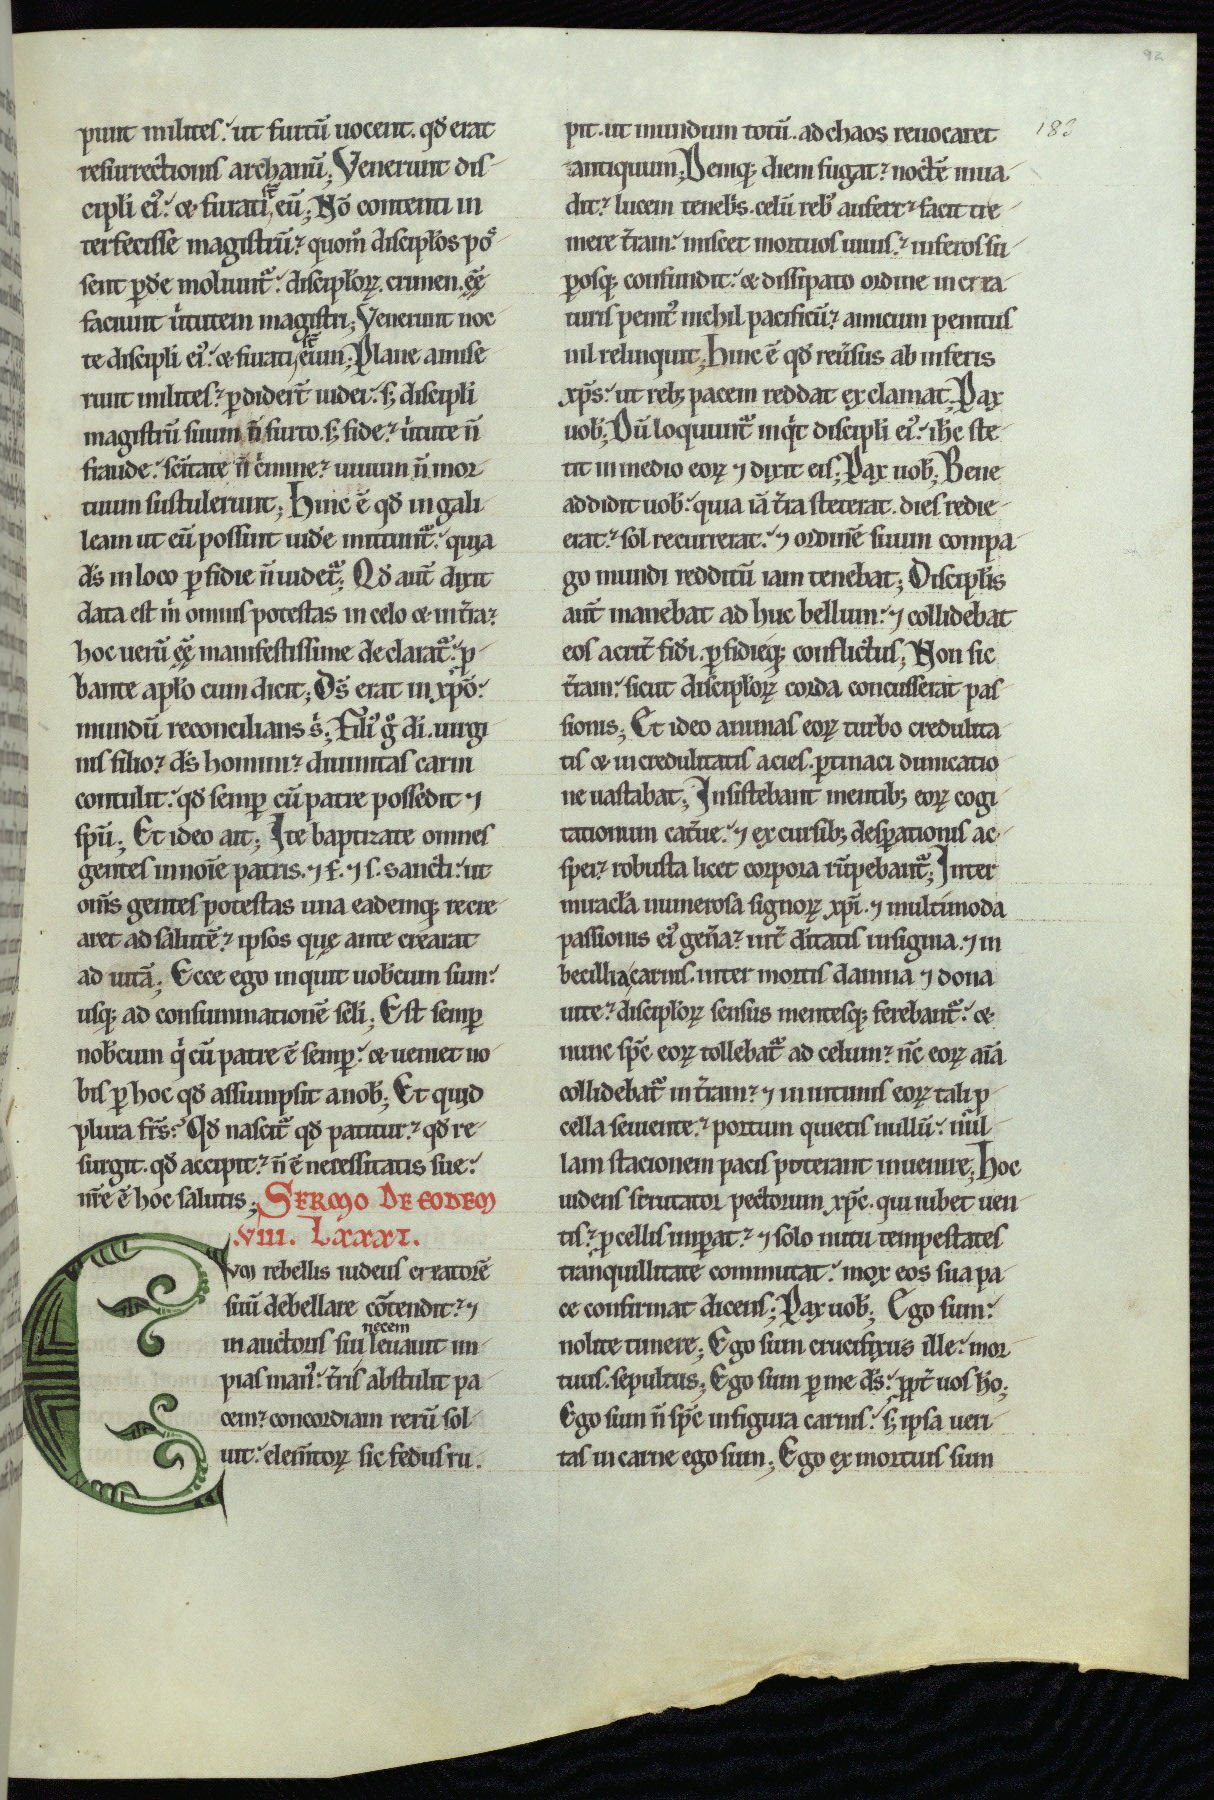 92
183
punt milites. ut furtū uocent. qđ erat
resurrectionis archanū; Venerunt dis
cipli eiꝰ. & furati st̄ eū; Nō contenti in
terfecisse magistrū. quom̄ discipłos pos
sent ꝑđe moliunt᷑. discipłoꝝ crimen. ee͂
faciunt ůtutem magistri; Venerunt noc
te discipli eiꝰ. & furati st̄ eum; Plane amise
runt milites. ꝑdider̄t iudei. sꝫ discipli
magistrū suum n̄ furto. sꝫ fide. ůtute n̄
fraude. sc̄itate n̄ cͥmine. uiuum n̄ mor
tuum sustulerunt; Hinc ē qđ in gali
leam ut eū possint uiđe mittunt᷑. quia
dS̄ in loco ꝑfidie n̄ uidet᷑; Qđ aut̄ dixit
data est mͥ omnis potestas in celo & in t̄ra.
hoc uerū ee͂ manifestissime declarat᷑. p̱
bante apło cum dicit; Ds̄ erat in xp̄o.
mundū reconcilians sͥ; Filiꝰ gͦ di̅. uirgi
nis filio. ds̄ homini. diuinitas carni
contulit. qđ semꝑ cū patre possedit ⁊
sp̄u; Et ideo ait; Ite baptizate omnes
gentes in no̅ie patris. ⁊ f. ⁊ s. sancti. ut
om̄s gentes potestas una eademqꝫ recre
aret ad salutē. ipsos quę ante crearat
ad uitā; Ecce ego inquit uobcum sum.
usqꝫ ad consummationē scłi; Est semꝑ
nobcum qͥ cū patre ē semꝑ. & ueniet uo
bis ꝑ hoc qđ assumpsit a nob; Et quid
plura fr̄s. Qđ nascit᷑ qđ patitur. qđ re
surgit. qđ accipit. n̄ ē necessitatis sue.
nr̄e ē hoc salutis; SERMO DE EODEM
.VIII. LXXXI.
CVM rebellis iudeus erratorē
suū debellare cōtendit. ⁊
in auctoris sui necem leuauit im
pias manꝰ. t̄ris abstulit pa
cem. concordiam rerū sol
uit. elem̄toꝝ sic fedus ru
pit. ut mundum totū. ad chaos reuocaret
antiquum; Deniqꝫ diem fugat. noctē inua
dit. lucem teneb̄s. celū rebꝰ aufert. facit tre
mere t̄ram. miscet mortuos uiuis. inferos su
ꝑosqꝫ confundit. & dissipato ordine in crea
turis penitꝰ nichil pacificū. amicum penitus
nil relinquit; Hinc ē qđ reuͥsus ab inferis
xp̄s. ut rebꝫ pacem reddat exclamat; Pax
uob; Dū loquunt᷑ inqͥt discipli eiꝰ. ihc̄ ste
tit in medio eoꝝ ⁊ dixit eis; Pax uob; Bene
addidit uob. quia iā t̄ra steterat. dies redie
rat. sol recurrerat. ⁊ ordinē suum compa
go mundi redditū iam tenebat; Discipłis
aut̄ manebat ad huc bellum. ⁊ collidebat
eos acrit̄ fidi. ꝑfidieqꝫ conflictus; Non sic
t̄ram. sicut discipłoꝝ corda concusserat pas
sionis; Et ideo animas eoꝝ turbo credulita
tis & incredulitatis acies. ꝑtinaci dimicatio
ne uastabat; Insistebant mentibꝫ eoꝝ cogi
tationum cat̄ue. ⁊ excursibꝫ desꝑationis ac
spei. robusta licet corpora rūpebant᷑; Inter
miracła numerosa signoꝝ xp̄i. ⁊ multimoda
passionis eiꝰ gen̄a. int̄ ditatis insignia. ⁊ in
becillia carnis. inter mortis damna ⁊ dona
uite. discipłoꝝ sensus mentesqꝫ ferebant᷑. &
nunc sp̄c eoꝝ tollebat᷑ ad celum. nc̄ eoꝝ aīā
collidebat᷑ in t̄ram. ⁊ in intimis eoꝝ tali ꝓ
cella seuiente. portum quietis nullū. nul
lam stacionem pacis poterant inuenire; Hoc
uidens scrutator pectorum xp̄c. qui iubet uen
tis. ꝓcellis imꝑat. ⁊ solo nutu tempestates
tranquillitate commutat. mox eos sua pa
ce confirmat dicens; Pax uob; Ego sum.
nolite timere; Ego sum crucifixus ille. mor
tuus. sepultus; Ego sum ꝑ me ds̄. ꝓpt̄ uos hō;
Ego sum n̄ sp̄c in figura carnis. sꝫ ipsa ueri
tas in carne ego sum; Ego ex mortuis sum